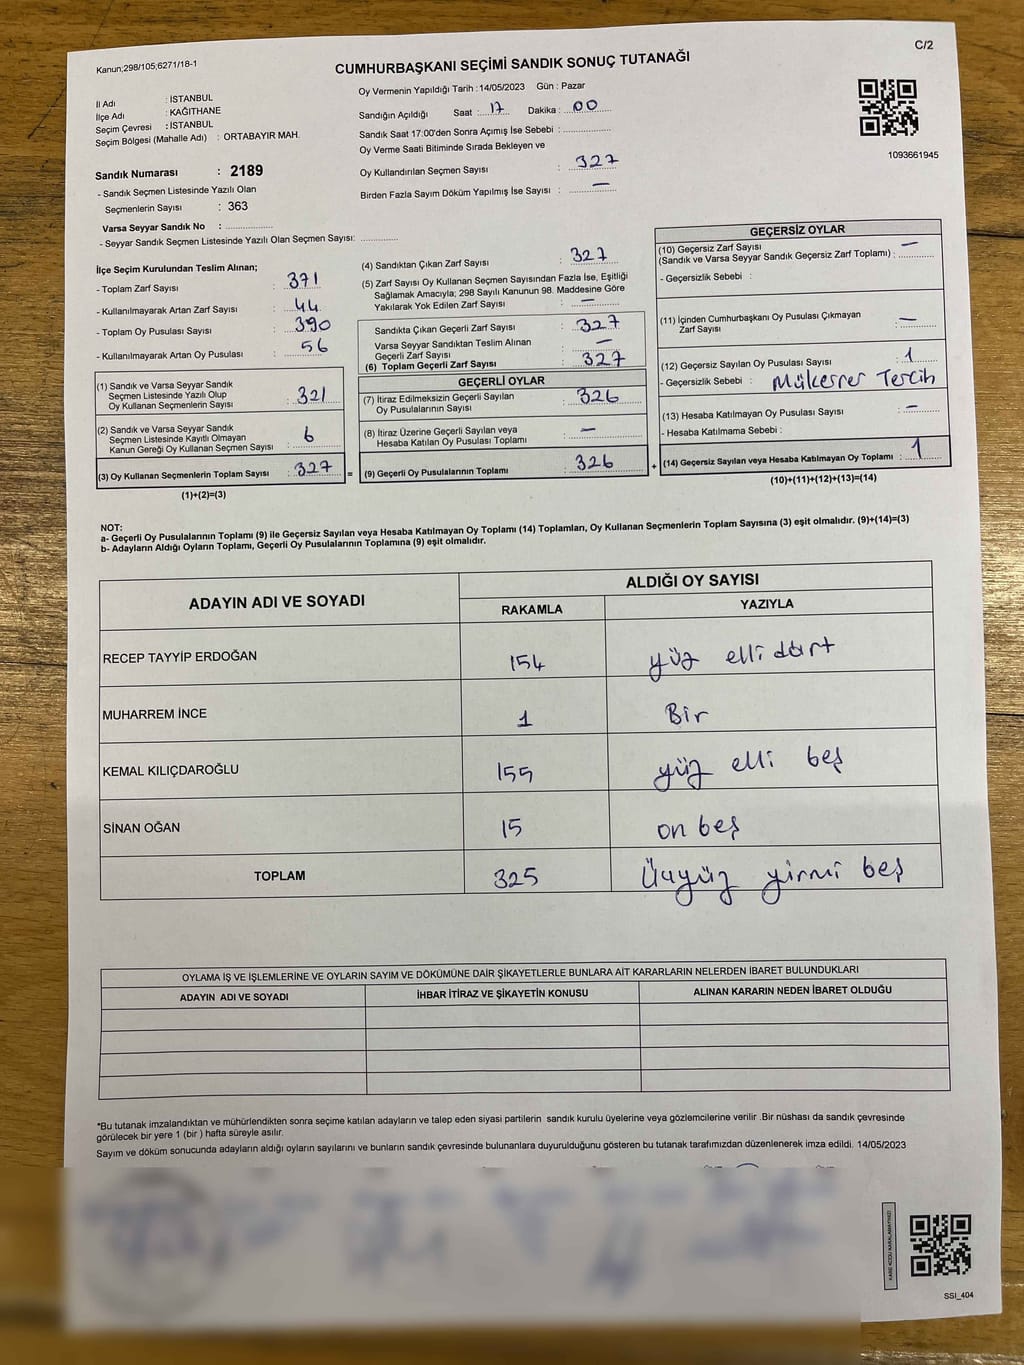 Kanun;298/105;6271/18-1
C/2
CUMHURBAŞKANI SEÇİMİ SANDIK SONUÇ TUTANAĞI
İl Adı : İSTANBUL
İlçe Adı : KAĞITHANE
Seçim Çevresi : İSTANBUL
Seçim Bölgesi (Mahalle Adı) : ORTABAYIR MAH.
Oy Vermenin Yapıldığı Tarih :14/05/2023 Gün : Pazar
Sandığın Açıldığı Saat : 17 Dakika : 00
Sandık Saat 17:00'den Sonra Açımış İse Sebebi :
Oy Verme Saati Bitiminde Sırada Bekleyen ve
Oy Kullandırılan Seçmen Sayısı : 327
Birden Fazla Sayım Döküm Yapılmış İse Sayısı : —
1093661945
Sandık Numarası : 2189
- Sandık Seçmen Listesinde Yazılı Olan
Seçmenlerin Sayısı : 363
Varsa Seyyar Sandık No :
- Seyyar Sandık Seçmen Listesinde Yazılı Olan Seçmen Sayısı:
İlçe Seçim Kurulundan Teslim Alınan;
- Toplam Zarf Sayısı : 371
- Kullanılmayarak Artan Zarf Sayısı : 44
- Toplam Oy Pusulası Sayısı : 390
- Kullanılmayarak Artan Oy Pusulası : 56
(1) Sandık ve Varsa Seyyar Sandık
Seçmen Listesinde Yazılı Olup
Oy Kullanan Seçmenlerin Sayısı : 321
(2) Sandık ve Varsa Seyyar Sandık
Seçmen Listesinde Kayıtlı Olmayan
Kanun Gereği Oy Kullanan Seçmen Sayısı : 6
(3) Oy Kullanan Seçmenlerin Toplam Sayısı : 327
(1)+(2)=(3)
(4) Sandıktan Çıkan Zarf Sayısı : 327
(5) Zarf Sayısı Oy Kullanan Seçmen Sayısından Fazla İse, Eşitliği
Sağlamak Amacıyla; 298 Sayılı Kanunun 98. Maddesine Göre
Yakılarak Yok Edilen Zarf Sayısı : —
Sandıkta Çıkan Geçerli Zarf Sayısı : 327
Varsa Seyyar Sandıktan Teslim Alınan
Geçerli Zarf Sayısı : —
(6) Toplam Geçerli Zarf Sayısı : 327
GEÇERLİ OYLAR
(7) İtiraz Edilmeksizin Geçerli Sayılan
Oy Pusulalarının Sayısı : 326
(8) İtiraz Üzerine Geçerli Sayılan veya
Hesaba Katılan Oy Pusulası Toplamı : —
= (9) Geçerli Oy Pusulalarının Toplamı : 326 +
GEÇERSİZ OYLAR
(10) Geçersiz Zarf Sayısı
(Sandık ve Varsa Seyyar Sandık Geçersiz Zarf Toplamı) : —
- Geçersizlik Sebebi :
(11) İçinden Cumhurbaşkanı Oy Pusulası Çıkmayan
Zarf Sayısı : —
(12) Geçersiz Sayılan Oy Pusulası Sayısı : 1
- Geçersizlik Sebebi : Mükerrer Tercih
(13) Hesaba Katılmayan Oy Pusulası Sayısı : —
- Hesaba Katılmama Sebebi :
(14) Geçersiz Sayılan veya Hesaba Katılmayan Oy Toplamı : 1
(10)+(11)+(12)+(13)=(14)
NOT:
a- Geçerli Oy Pusulalarının Toplamı (9) ile Geçersiz Sayılan veya Hesaba Katılmayan Oy Toplamı (14) Toplamları, Oy Kullanan Seçmenlerin Toplam Sayısına (3) eşit olmalıdır. (9)+(14)=(3)
b- Adayların Aldığı Oyların Toplamı, Geçerli Oy Pusulalarının Toplamına (9) eşit olmalıdır.
ADAYIN ADI VE SOYADI ALDIĞI OY SAYISI
RAKAMLA YAZIYLA
RECEP TAYYİP ERDOĞAN 154 yüz elli dört
MUHARREM İNCE 1 Bir
KEMAL KILIÇDAROĞLU 155 yüz elli beş
SİNAN OĞAN 15 on beş
TOPLAM 325 Üçyüz yirmi beş
OYLAMA İŞ VE İŞLEMLERİNE VE OYLARIN SAYIM VE DÖKÜMÜNE DAİR ŞİKAYETLERLE BUNLARA AİT KARARLARIN NELERDEN İBARET BULUNDUKLARI
ADAYIN ADI VE SOYADI İHBAR İTİRAZ VE ŞİKAYETİN KONUSU ALINAN KARARIN NEDEN İBARET OLDUĞU
*Bu tutanak imzalandıktan ve mühürlendikten sonra seçime katılan adayların ve talep eden siyasi partilerin sandık kurulu üyelerine veya gözlemcilerine verilir .Bir nüshası da sandık çevresinde
görülecek bir yere 1 (bir ) hafta süreyle asılır.
Sayım ve döküm sonucunda adayların aldığı oyların sayılarını ve bunların sandık çevresinde bulunanlara duyurulduğunu gösteren bu tutanak tarafımızdan düzenlenerek imza edildi. 14/05/2023
SSI_404